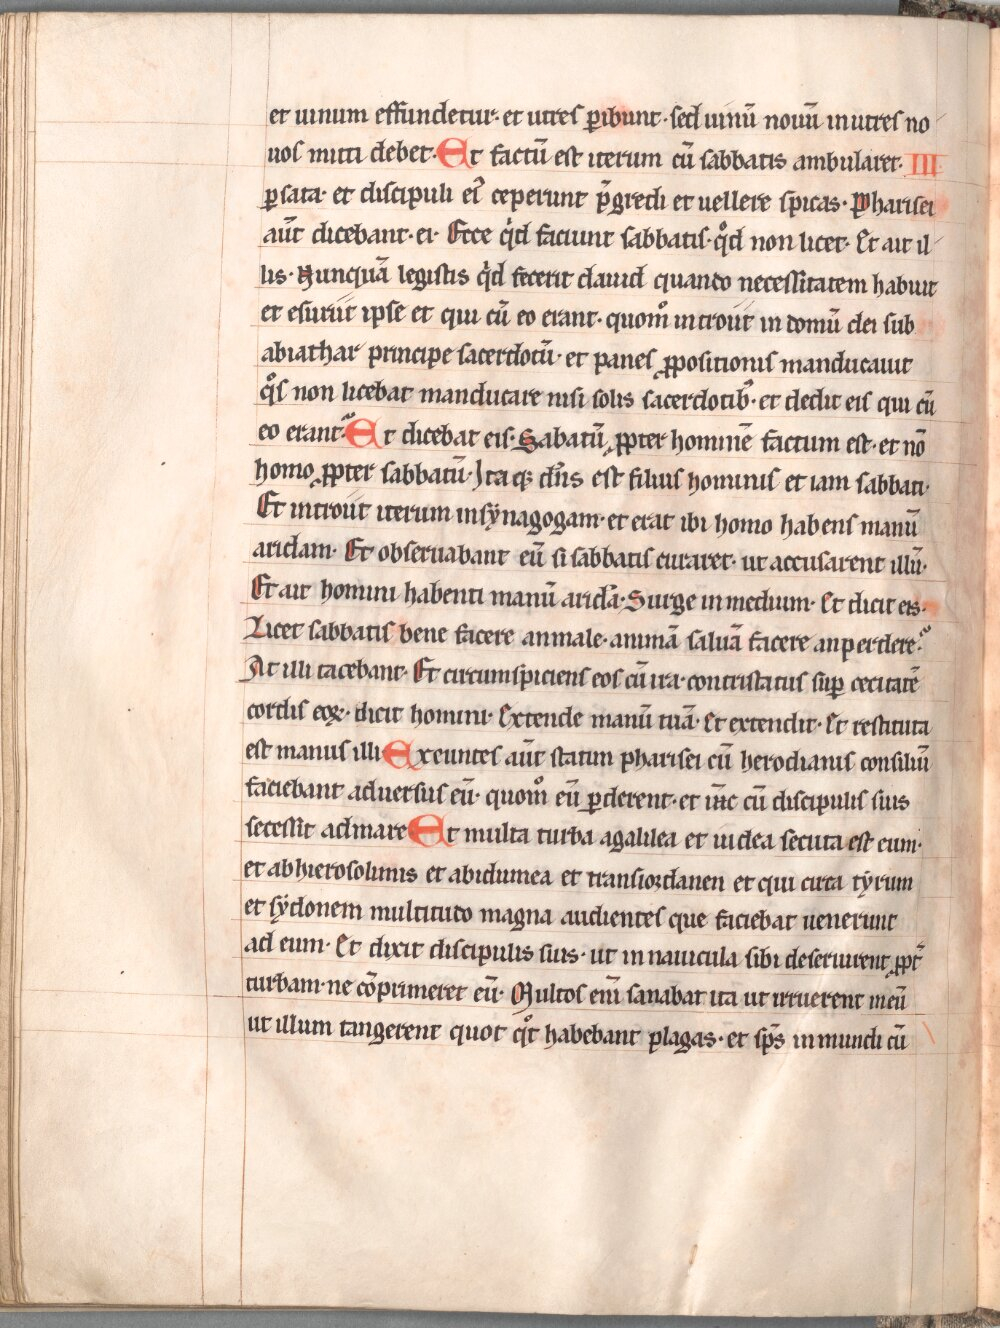 et uinum effundetur· et utres ꝑibunt· sed uinū nouū in utres no
uos mitti debet· Et factū est iterum cū sabbatis ambularet· III
ꝑ sata· et discipuli ei᾽ ceperunt p̄gredi et uellere spicas· Pharisei
aūt dicebant· ei· Ecce qͥd faciunt sabbatis· qͦd non licet· Et ait il
lis· Nunquā legistis qͥd fecerit dauid quando necessitatem habuit
et esuriit ipse et qui cū eo erant· quomͦ introiit in domū dei sub
abiathar principe sacerdotū· et panes ꝓpositionis manducauit
qͦs non licebat manducare nisi solis sacerdotib᾽· et dedit eis qui cū
eo erant· Et dicebat eis· Sabatū ꝓpter hominē factum est· et nō
homo ꝓpter sabbatū· Itaqꝫ dn̄s est filius hominis et iam sabbati·
Et introiit iterum in synagogam· et erat ibi homo habens manū
aridam· Et obseruabant eū si sabbatis curaret· ut accusarent illū·
Et ait homini habenti manū aridā· Surge in medium· Et dicit eis·
Licet sabbatis bene facere an male· animā saluā facere an perdere·
At illi tacebant· Et circumspiciens eos cū ira· contristatus suꝑ cecitatē
cordis eoꝝ· dicit homini· Extende manū tuā· Et extendit· Et restituta
est manus illi Exeuntes aūt statim pharisei cū herodianis consiliū
faciebant aduersus eū· quomͦ eū ꝑderent· et ih̄c cū discipulis suis
secessit ad mare Et multa turba a galilea et iudea secuta est eum·
et ab hierosolimis et ab idumea et transiordanen et qui circa tyrum
et sydonem multitudo magna audientes que faciebat uenerunt
ad eum· Et dixit discipulis suis· ut in nauicula sibi deseruirent ꝓpt᾽
turbam· ne cōprimeret eū· Multos eni᷑ sanabat ita ut irruerent in eū
ut illum tangerent quot qͦt habebant plagas· et sp̄s inmundi cū